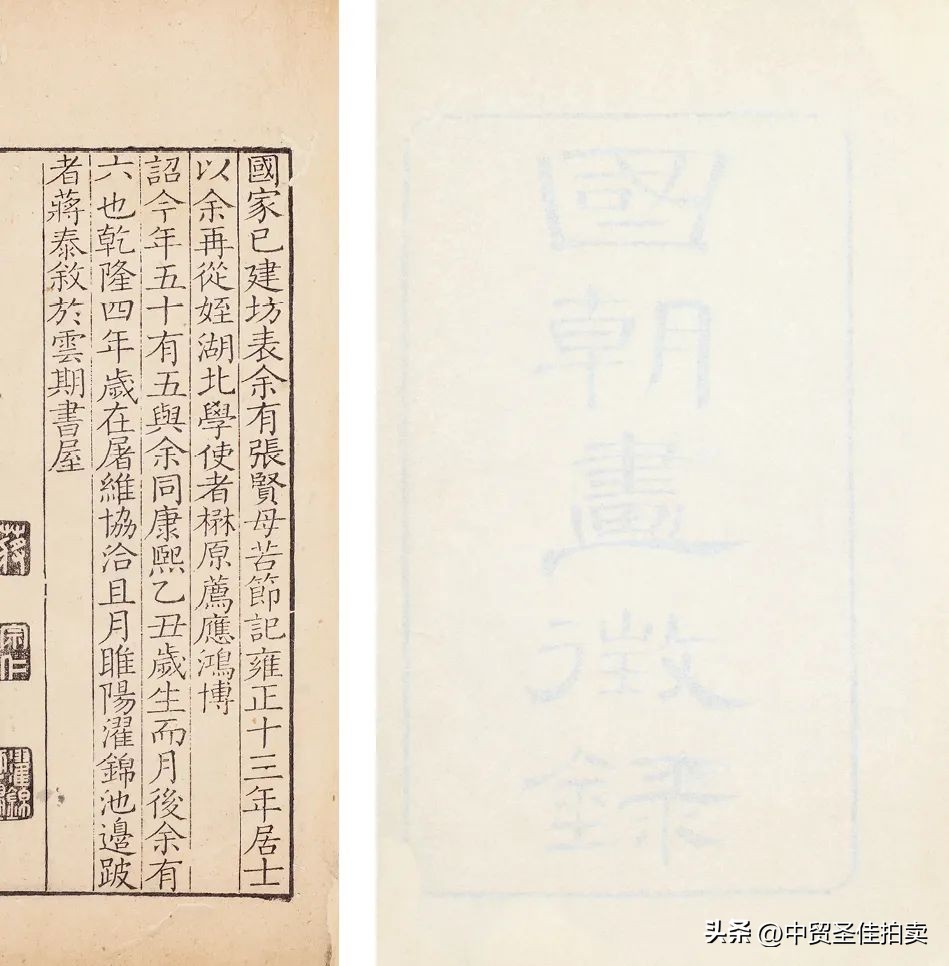 國家已建坊表余有張賢母苦節記雍正十三年居士
以余再從姪湖北學使者楙原薦應鴻博
詔今年五十有五與余同康熙乙丑歲生而月後余有
六也乾隆四年歲在屠維協洽且月睢陽濯錦池邊跛
者蔣泰敘於雲期書屋
國朝畫徵錄
头条 @中贸圣佳拍卖